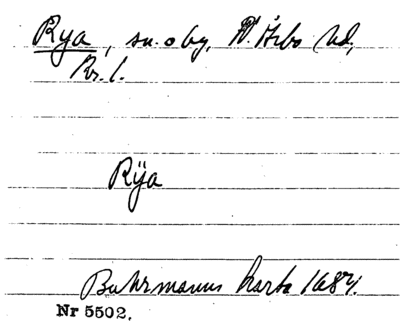 Rya, sn. o by, V. Åsbo hd,
Kr. l.
Rÿa
Buhrmanns karta 1684.
Nr 5502.